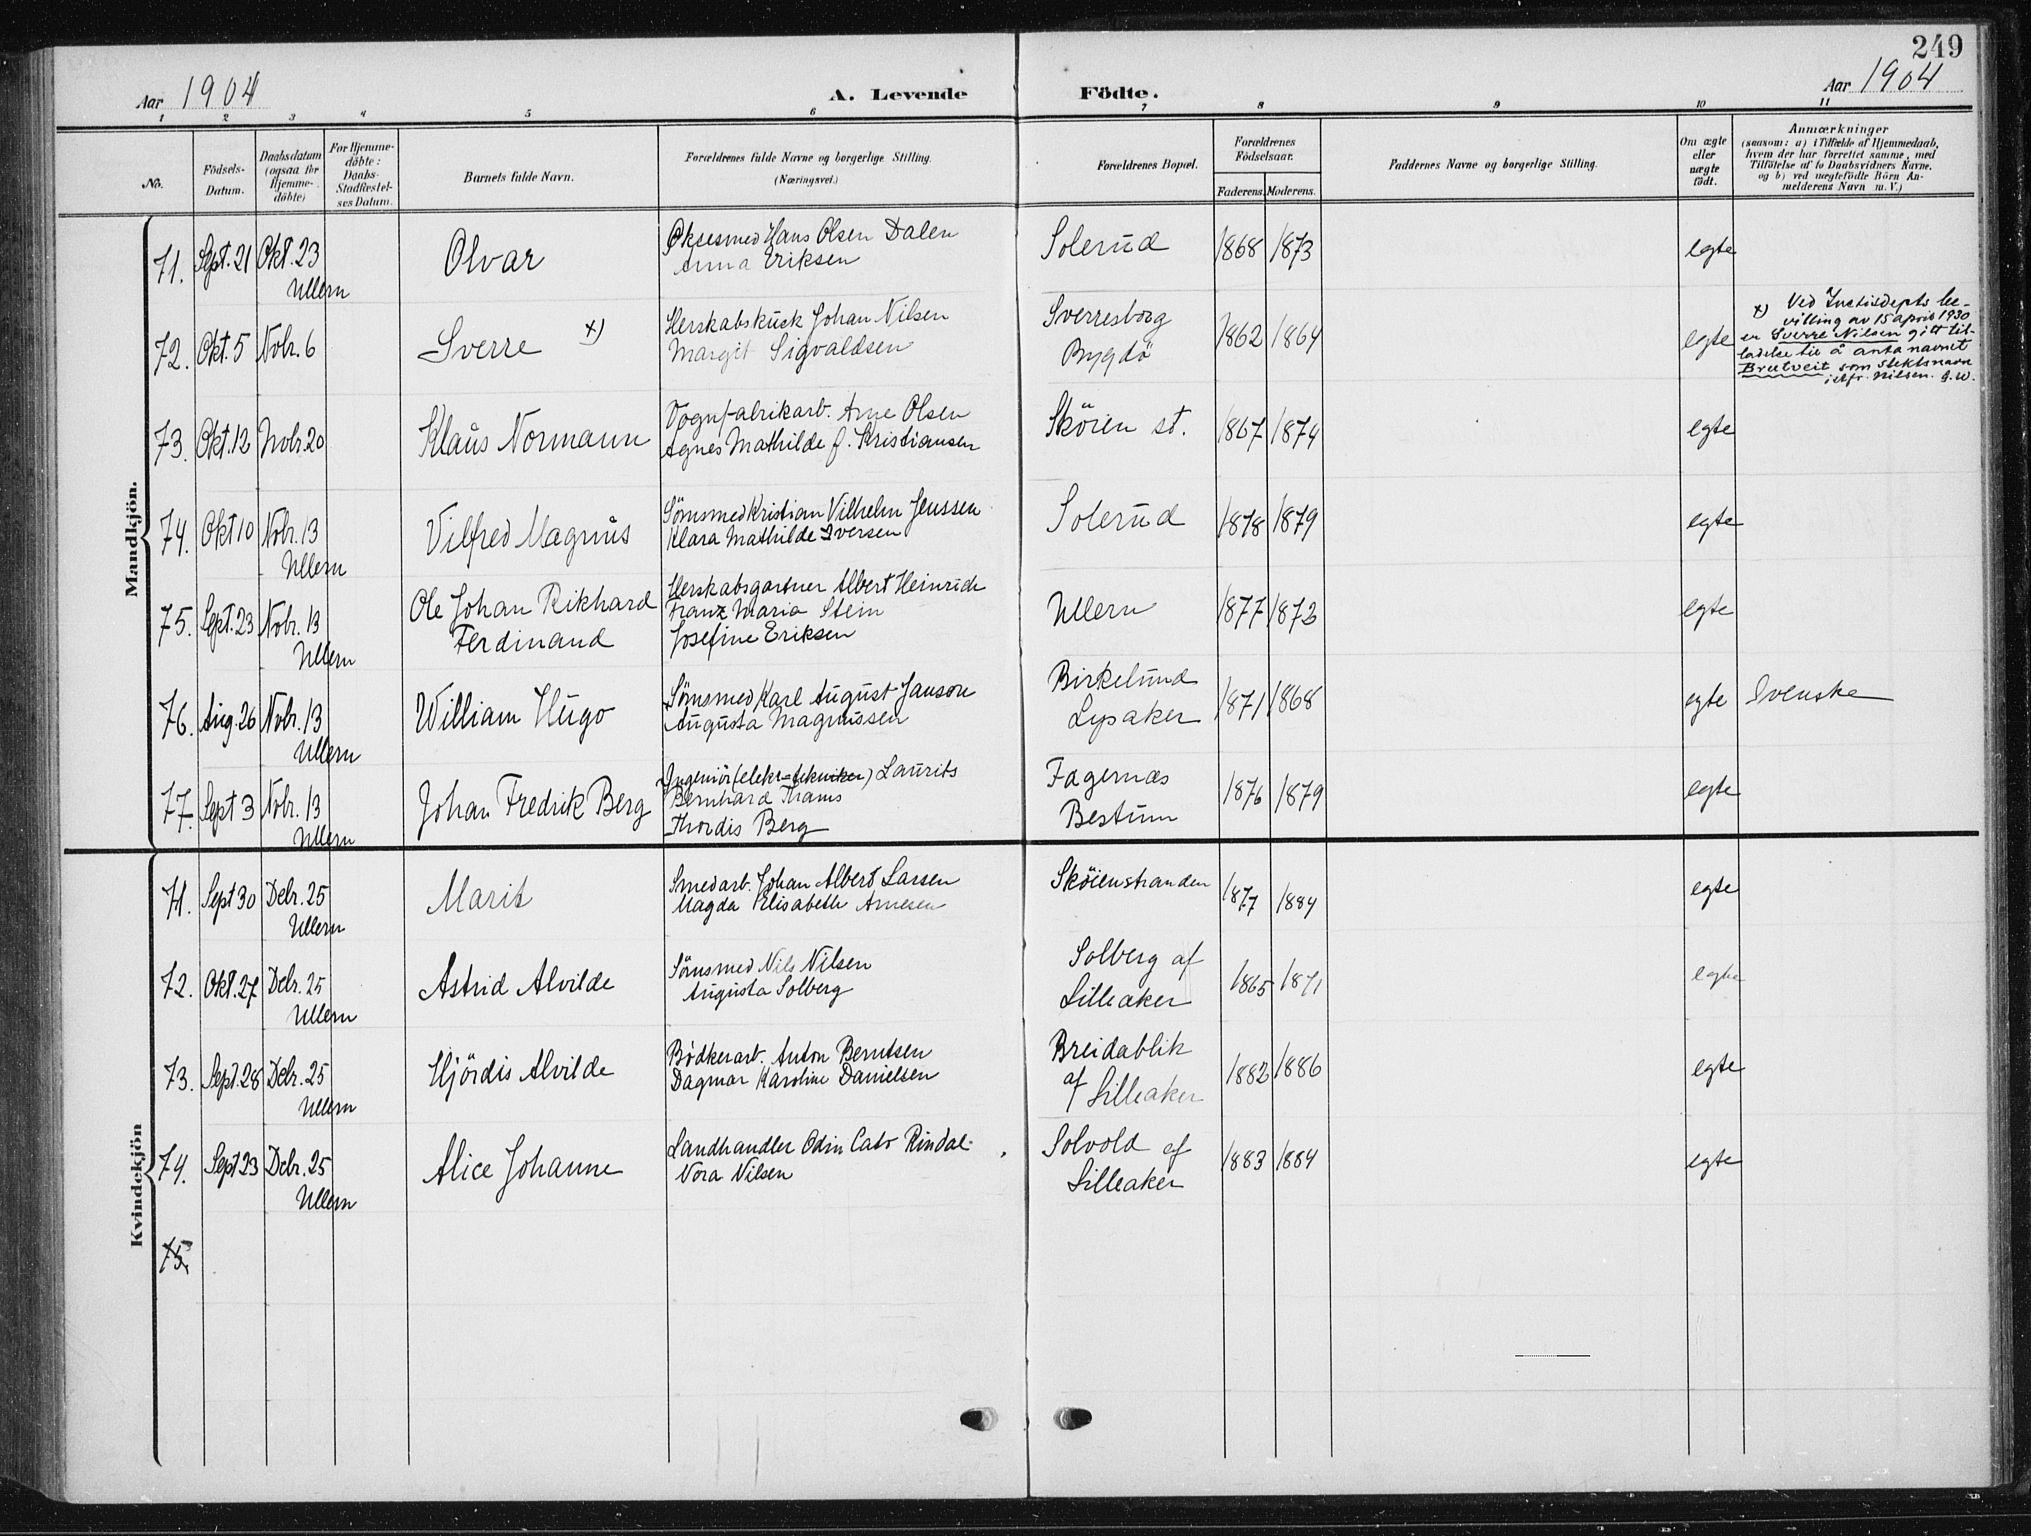 249
Aar 1904 A. Levende Födte. Aar 1904
1 2 3 4 5 6 7 8 9 10 11
No.
Födsels-
Datum.
Daabsdatum
(ogsaa for
Hjemme-
döbte)
For Hjemme-
döbte:
Daabs-
Stadfæstel-
ses Datum.
Barnets fulde Navn.
Forældrenes fulde Navne og borgerlige Stilling.
(Næringsvei.)
Forældrenes Bopæl.
Forældrenes
Födselsaar.
Faderens. Moderens.
Faddernes Navne og borgerlige Stilling.
Om ægte
eller
uægte
født.
Anmærkninger
(saasom: a) i Tilfælde af Hjemmedaab,
hvem der har forrettet samme, med
Tilføielse af to Daabsvidners Navne.
og b) ved uægtefödte Börn An-
melderens Navn m. V.)
Mandkjön.
71. Sept. 21 Okt. 23 Olvar Öksesmed Hans Olsen Dalen Solerud 1868 1873 egte
Ullern Anna Eriksen
72. Okt. 5 Nobr. 6 Sverre x) Herskabskusk Johan Nilsen Sverresborg 1862 1864 egte
Margit Sigvaldsen Bygdö
x) Ved Justisdepts be-
villing av 15 april 1930
er Sverre Nilsen gitt til-
ladelse til å anta navnet
Brutveit som slektsnavn
istfr. Nilsen. G.W.
73. Okt. 12 Nobr. 20 Klaus Normann Vognfabrikarb. Arne Olsen Sköien st. 1867 1874 egte
Agnes Mathilde f. Kristiansen
74. Okt 10 Nobr. 13 Vilfred Magnus Sömsmed Kristian Vilhelm Jenssen Solerud 1878 1879 egte
Ullern Klara Mathilde Iversen
75. Sept. 23 Nobr. 13 Ole Johan Rikhard Herskabsgartner Albert Heinrich Ullern 1877 1873 egte
Ullern Ferdinand Franz Maria Stein
Josefine Eriksen
76. Aug. 26 Nobr. 13 William Hugo Sömsmed Karl August Janson Birkelund 1871 1868 egte Svenske
Ullern Augusta Magnussen Lysaker
77. Sept 3 Nobr. 13 Johan Fredrik Berg Ingeniör (elektr-tekniker) Laurits Fagernæs 1876 1879 egte
Ullern Bernhard Thams Bestum
Thordis Berg
Kvindekjön
71. Sept 30 Debr. 25 Marit Smedarb. Johan Albert Larsen Sköienstranden 1877 1884 egte
Ullern Magda Elisabeth Arnesen
72. Okt. 27 Debr. 25 Astrid Alvilde Sömsmed Nils Nilsen Solberg af 1865 1871 egte
Ullern Augusta Solberg Lilleaker
73. Sept. 28 Debr. 25 Hjördis Alvilde Bödkerarb. Anton Berntsen Breidablik 1882 1886 egte
Ullern Dagmar Karoline Danielsen af Lilleaker
74. Sept 23 Debr. 25 Alice Johanne Landhandler Odin Cato Rindal Solvold af 1883 1884 egte
Ullern Nora Nilsen Lilleaker
75.